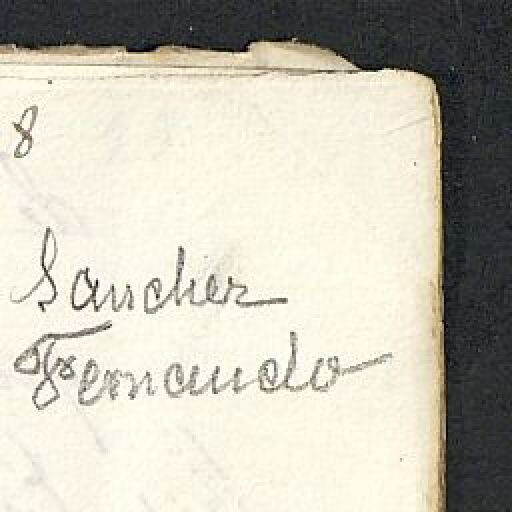 8
Sanchez
Fernando